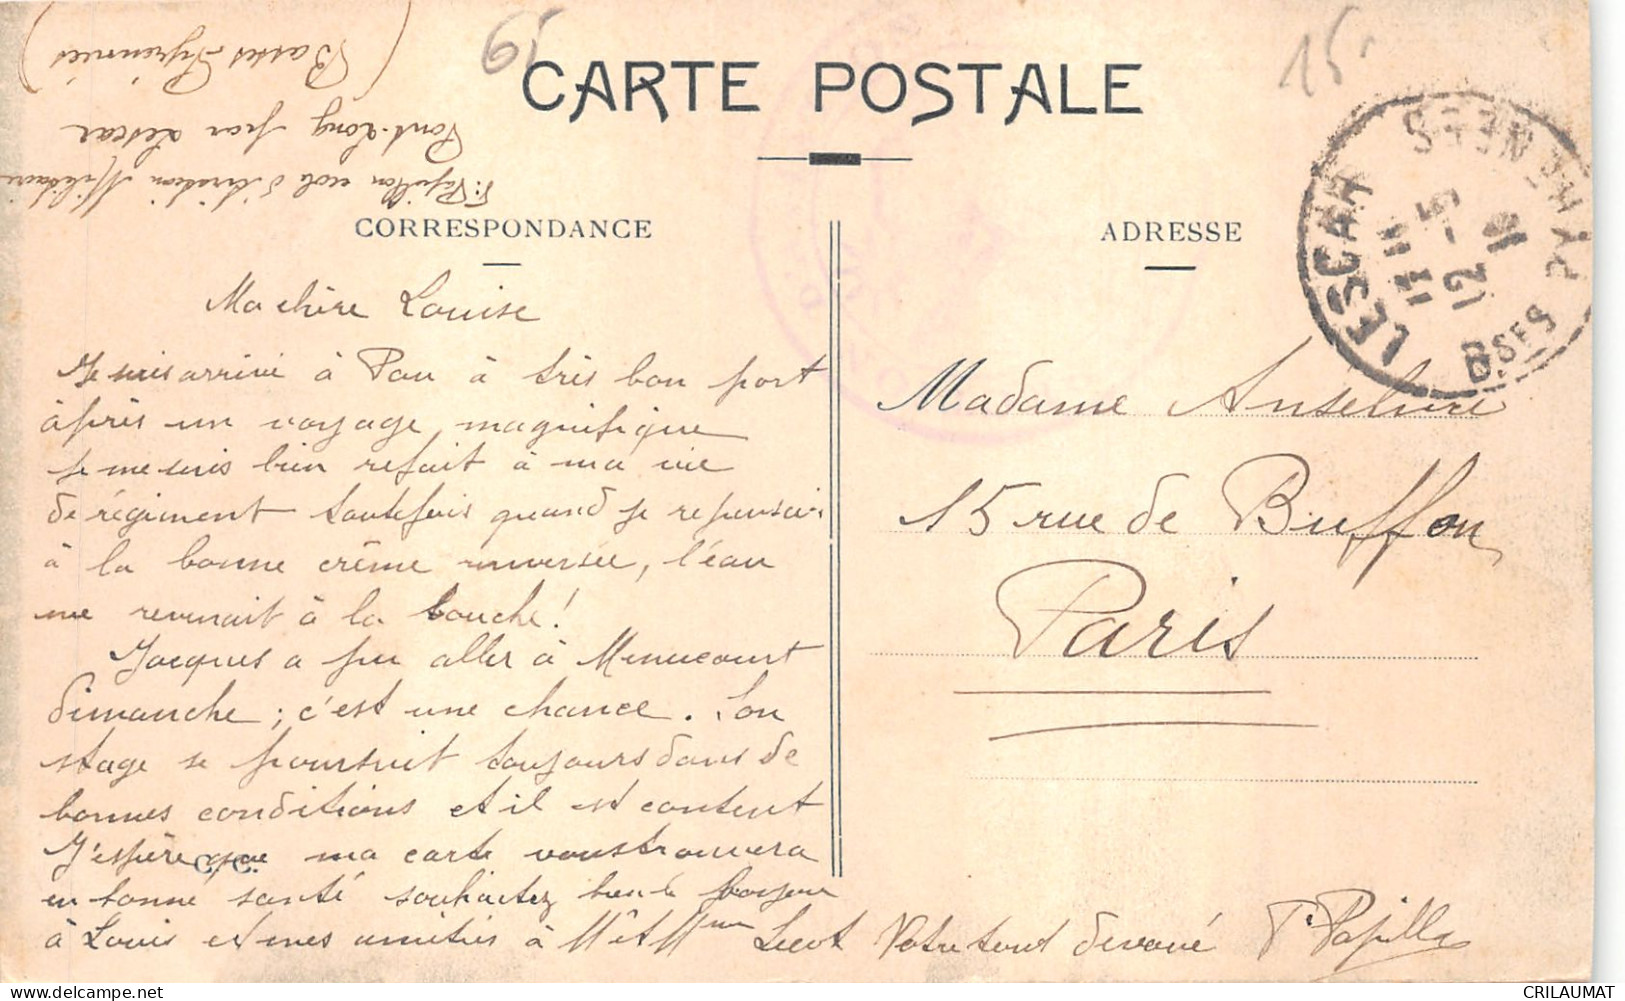 65
15
CARTE POSTALE
(Basses Pyrénnées)
Pont-Long par Lescar
P. Papillon école d'aviation Militaire
CORRESPONDANCE
ADRESSE
LESCAR
BSES PYRENEES
11 - 5
12
Ma chère Louise
Je suis arrivé à Pau à très bon port
après un voyage magnifique
je me suis bien refait à ma vie
de régiment toutefois quand je repensais
à la bonne crême renversée, l'eau
me revenait à la bouche!
Jacques a pu aller à Menucourt
dimanche; c'est une chance. Son
stage se poursuit toujours dans de
bonnes conditions et il est content
J'espère que ma carte vous trouvera
C. C.
en bonne santé souhaitez bien le bonjour
à Louis et mes amitiés à Mr et Mme Votre tout dévoué P. Papillon
Madame Anselme
15 rue de Buffon
Paris
CRILAUMAT